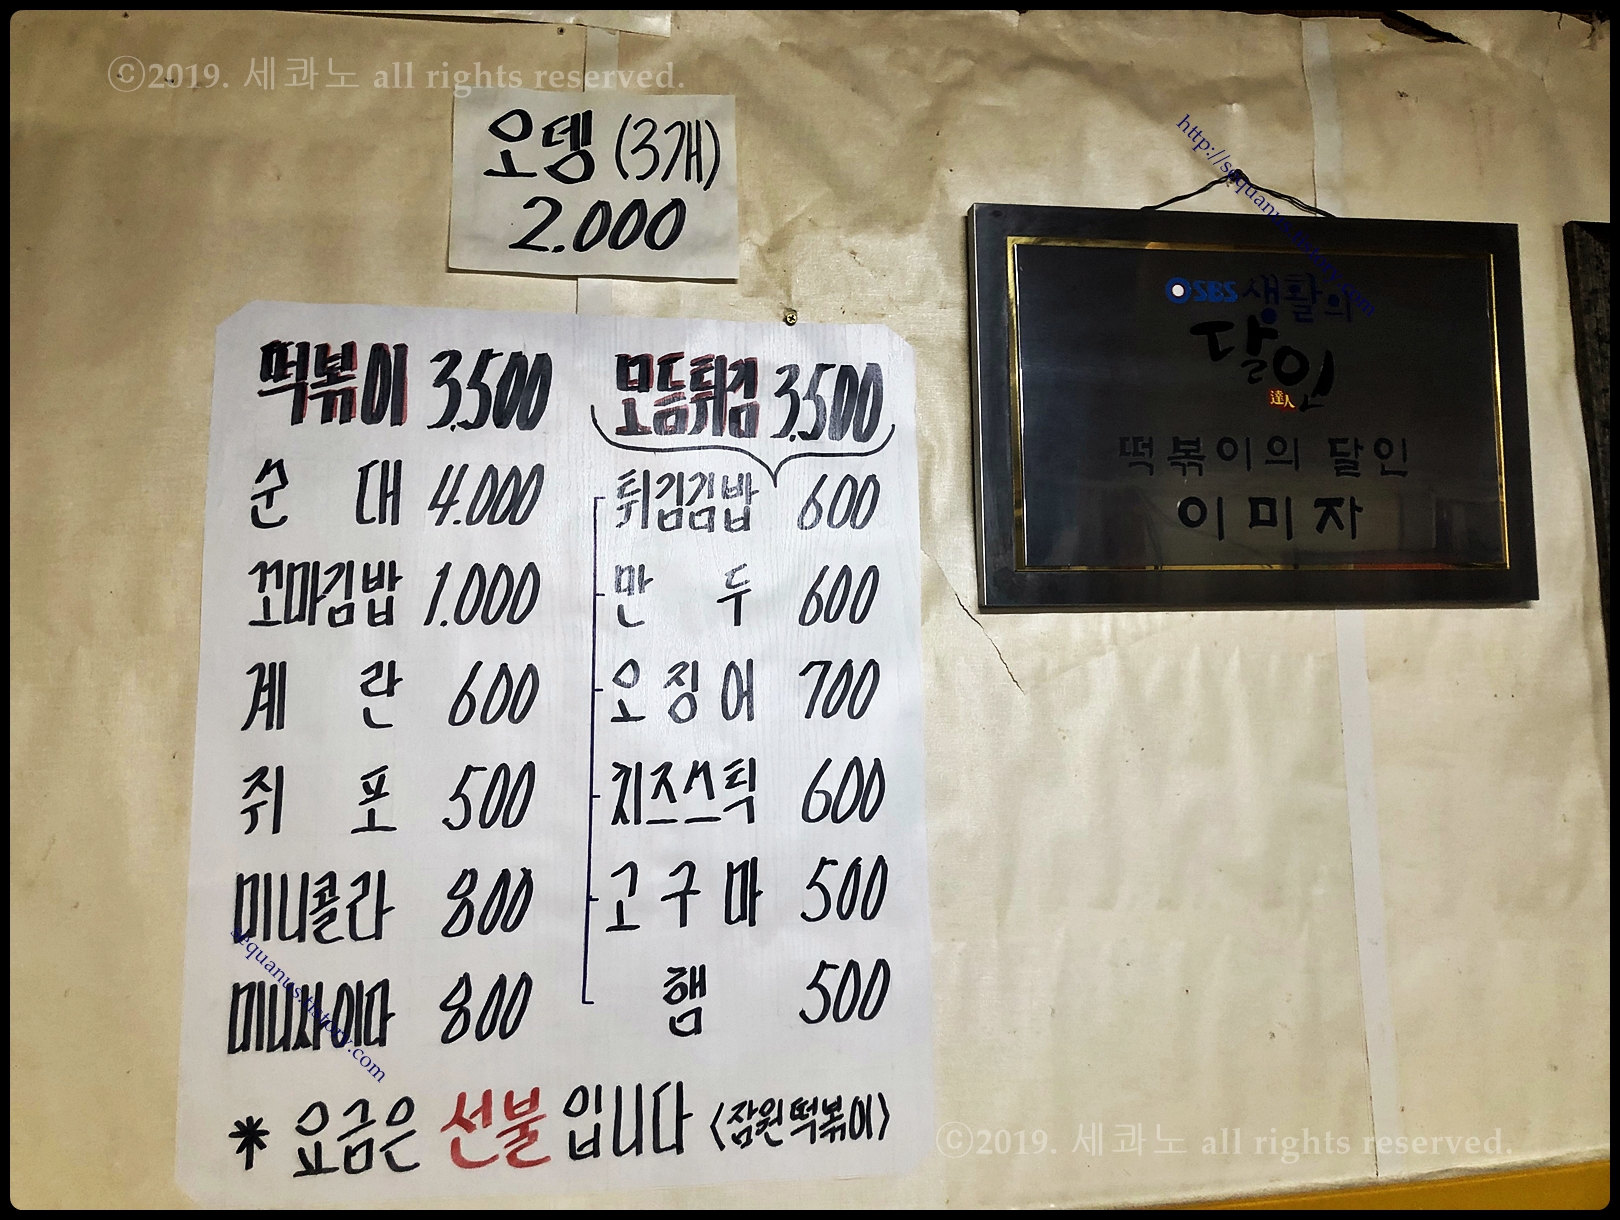 ©2019. 세콰노 all rights reserved.
오뎅 (3개)
2.000
떡볶이 3.500
순대 4.000
꼬마김밥 1.000
계란 600
쥐포 500
미니콜라 800
미니사이다 800
모듬튀김 3.500
튀김김밥 600
만두 600
오징어 700
치즈스틱 600
고구마 500
햄 500
* 요금은 선불입니다 <잠원떡볶이>
http://sequanus.tistory.com
SBS 생활의
달인
達人
떡볶이의 달인
이미자
sequanus.tistory.com
©2019. 세콰노 all rights reserved.